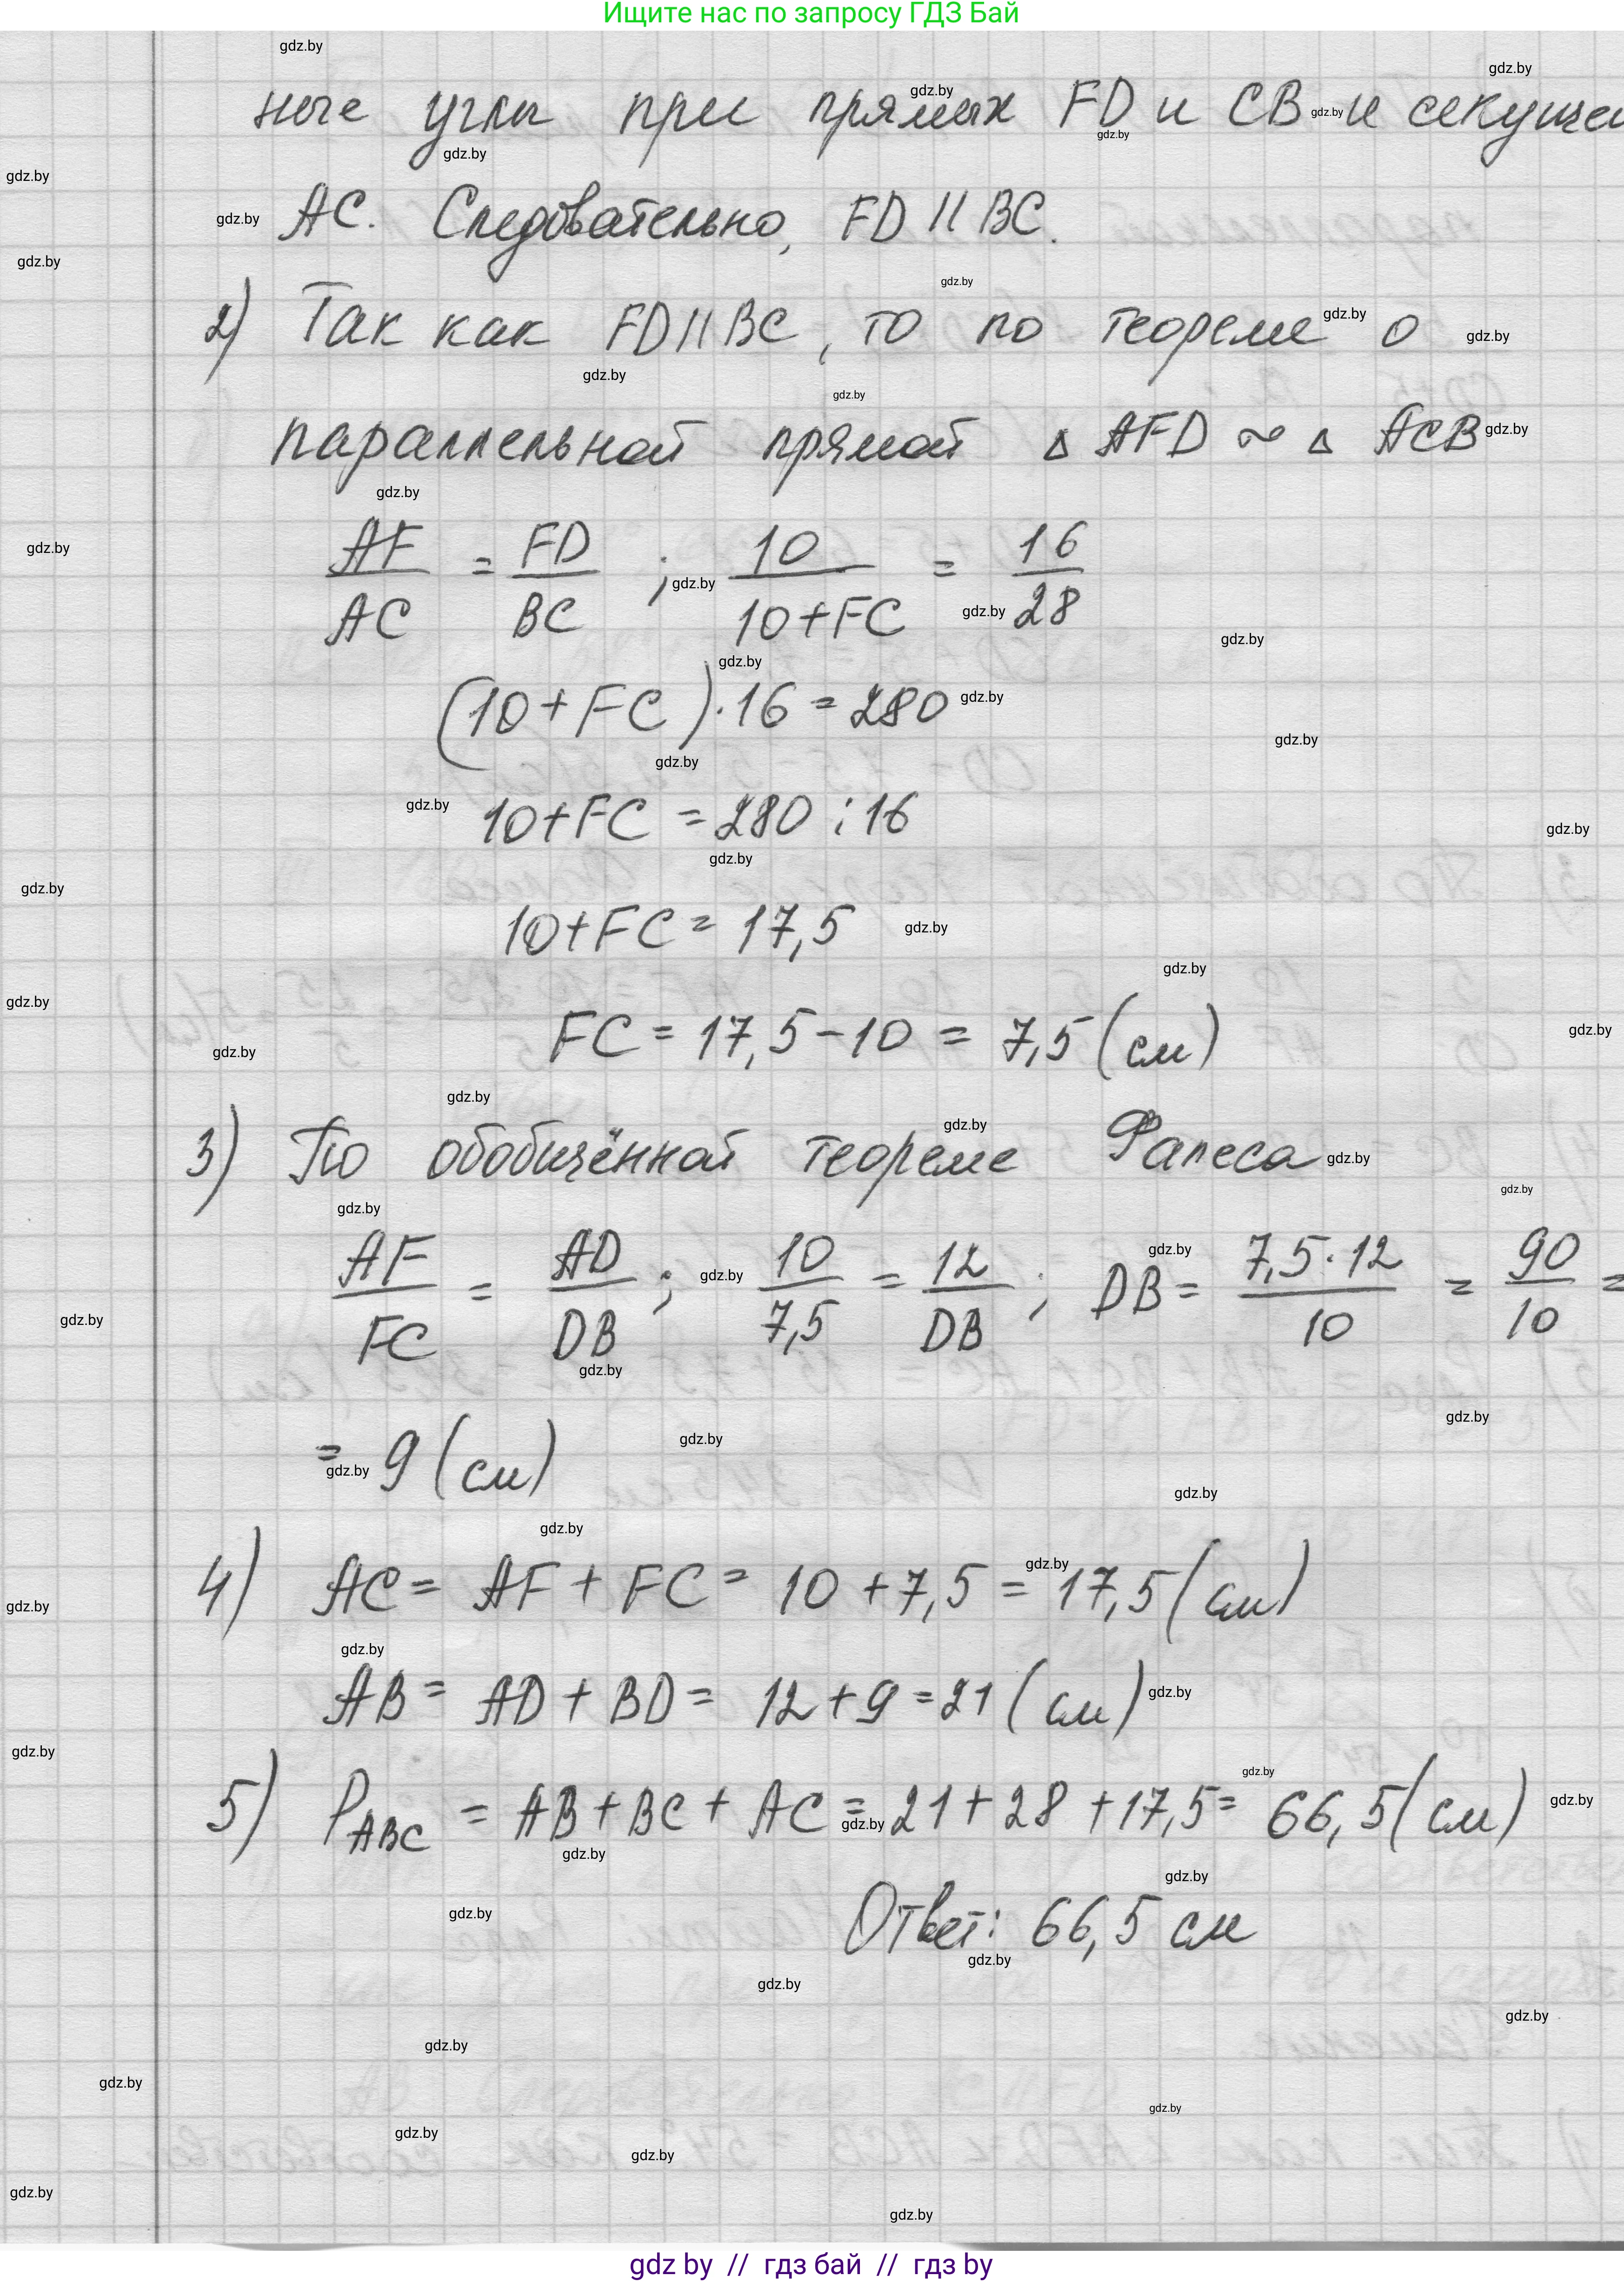 Ищите нас по запросу ГДЗ Бай
ные углы при прямых FD и CB и секущей
AC. Следовательно, FD || BC.
2) Так как FD || BC, то по теореме о
параллельной прямой △ AFD ~ △ ACB
AF/AC = FD/BC ; 10/(10+FC) = 16/28
(10+FC)·16 = 280
10+FC = 280 : 16
10+FC = 17,5
FC = 17,5 − 10 = 7,5 (см)
3) По обобщённой теореме Фалеса
AF/FC = AD/DB ; 10/7,5 = 12/DB ; DB = 7,5·12/10 = 90/10 =
= 9 (см)
4) AC = AF + FC = 10 + 7,5 = 17,5 (см)
AB = AD + BD = 12 + 9 = 21 (см)
5) P ABC = AB + BC + AC = 21 + 28 + 17,5 = 66,5 (см)
Ответ: 66,5 см
gdz by // гдз бай // гдз by